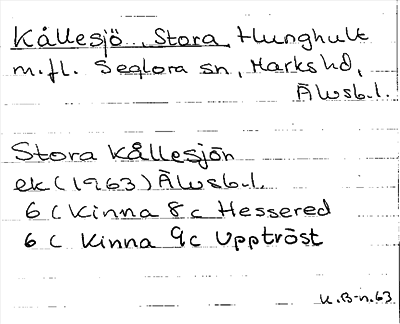 Kållesjö, Stora, Hunghult
m.fl. Seglora sn, Marks hd,
Älvsb.l.
Stora Kållesjön
ek (1963) Älvsb.l.
6 C Kinna 8 c Hessered
6 C Kinna 9 c Upptröst
K.B-n.63